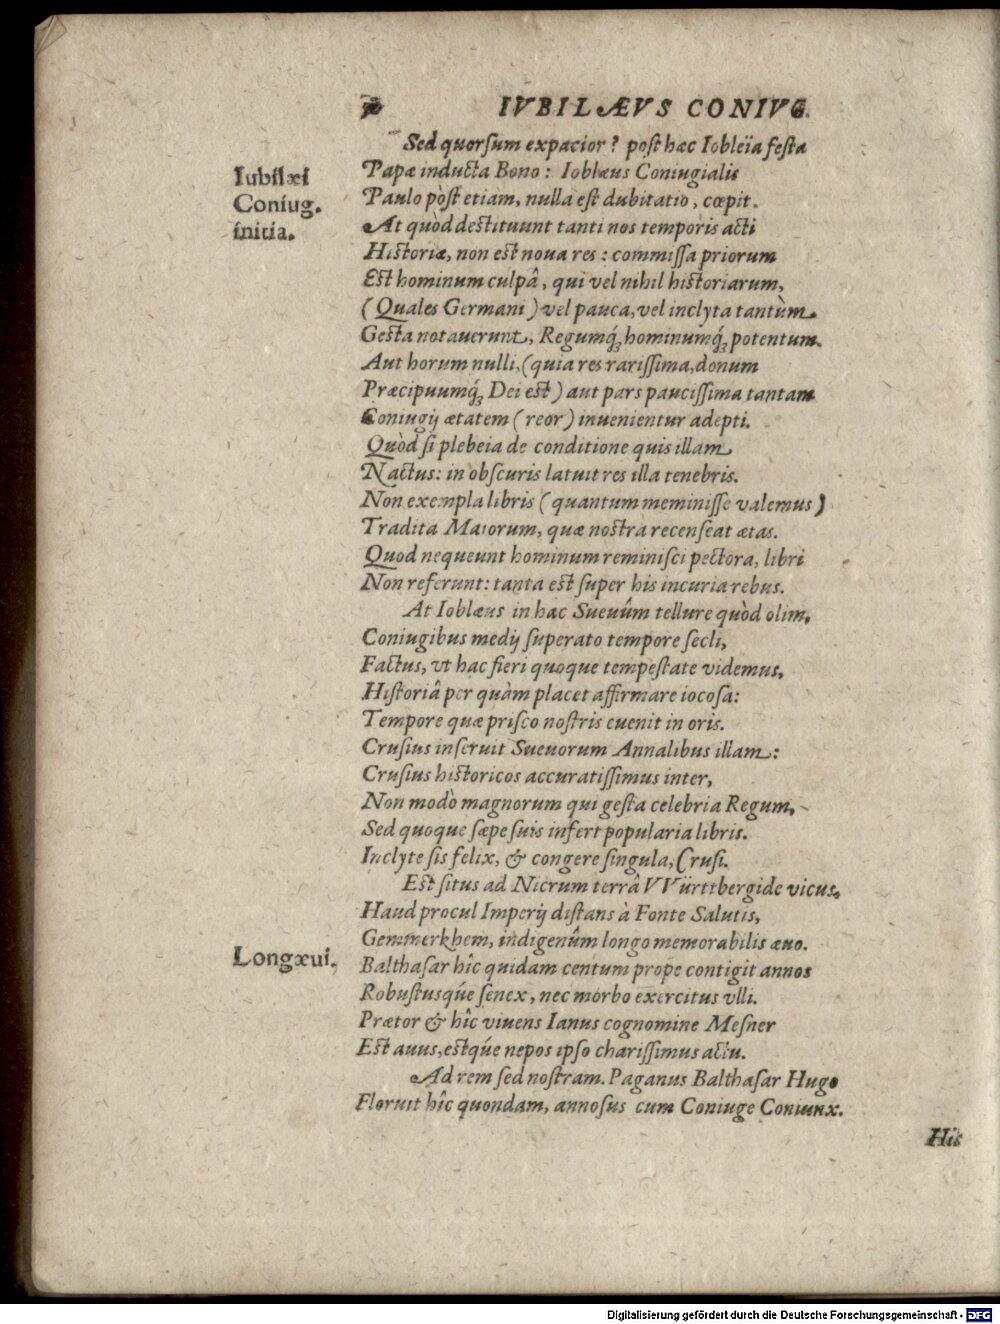 IVBILÆVS CONIVG.
Sed quorſum expacior? poſt hæc Iobleïa feſta
Iubilæi
Coniug.
initia.
Papæ inducta Bono: Ioblæus Coniugialis
Paulo pòſt etiam, nulla eſt dubitatio, cœpit.
At quòd deſtituunt tanti nos temporis acti
Hiſtoriæ, non eſt noua res: commiſſa priorum
Eſt hominum culpâ, qui vel nihil hiſtoriarum,
(Quales Germani) vel pauca, vel inclyta tantùm
Geſta notauerunt, Regumq́; hominumq́; potentum.
Aut horum nulli, (quia res rariſſima, donum
Præcipuumq́; Dei eſt) aut pars pauciſſima tantam
Coniugij ætatem (reor) inuenientur adepti.
Quòd ſi plebeia de conditione quis illam
Nactus: in obſcuris latuit res illa tenebris.
Non exempla libris (quantum meminiſſe valemus)
Tradita Maiorum, quæ noſtra recenſeat ætas.
Quod nequeunt hominum reminiſci pectora, libri
Non referunt: tanta eſt ſuper his incuria rebus.
At Ioblæus in hac Sueuûm tellure quòd olim,
Coniugibus medij ſuperato tempore ſecli,
Factus, vt hac fieri quoque tempeſtate videmus,
Hiſtoriâ per quàm placet affirmare iocoſa:
Tempore quæ priſco noſtris euenit in oris.
Cruſius inſeruit Sueuorum Annalibus illam:
Cruſius hiſtoricos accuratiſſimus inter,
Non modò magnorum qui geſta celebria Regum,
Sed quoque ſæpe ſuis infert popularia libris.
Inclyte ſis felix, & congere ſingula, Cruſi.
Eſt ſitus ad Nicrum terrâ VVürttbergide vicus,
Haud procul Imperij diſtans à Fonte Salutis,
Gemmerkhem, indigenûm longo memorabilis æuo.
Longæui.
Balthaſar hîc quidam centum prope contigit annos
Robuſtusqúe ſenex, nec morbo exercitus vlli.
Prætor & hîc viuens Ianus cognomine Meſner
Eſt auus, eſtqúe nepos ipſo chariſſimus actu.
Ad rem ſed noſtram. Paganus Balthaſar Hugo
Floruit hîc quondam, annoſus cum Coniuge Coniunx.
His
Digitalisierung gefördert durch die Deutsche Forschungsgemeinschaft - DFG